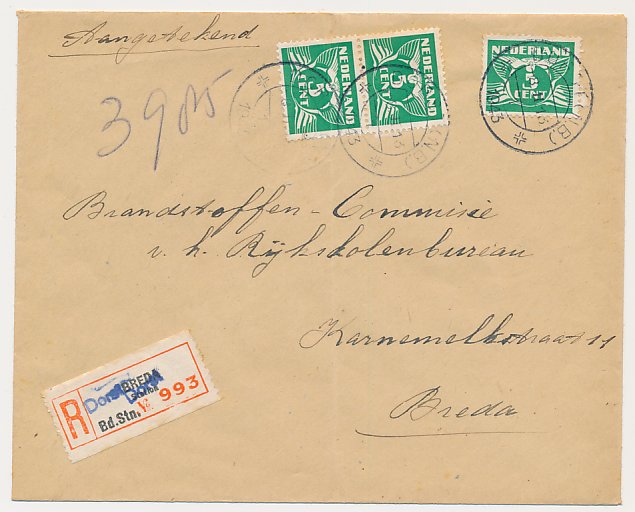 Aangetekend
NEDERLAND
5
CENT
NEDERLAND
5
CENT
NEDERLAND
5
CENT
(N.B.)
(N.B.)
Brandstoffen-Commisie
v. h. Rijkskolenbureau
Karnemelkstraat 11
Breda
R
BREDA
Station
Dorst
Bd.Stn.
993